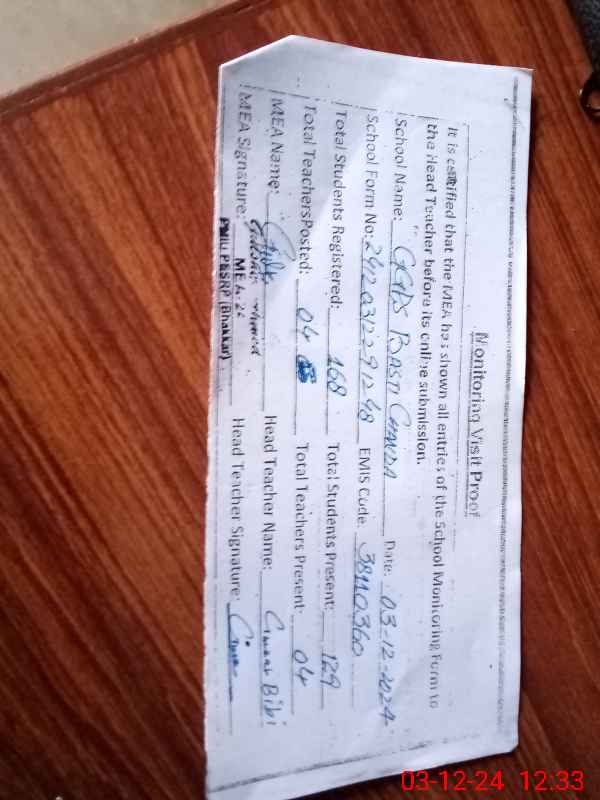 Monitoring Visit Proof
It is certified that the MEA has shown all entries of the School Monitoring Form to
the Head Teacher before its online submission.
School Name: GGPS BASTI CHANDA Date: 03-12-2024
School Form No: 2912031229 1248 EMIS Code: 38110360
Total Students Registered: 168 Total Students Present: 129
Total Teachers Posted: 04 Total Teachers Present: 04
MEA Name: Head Teacher Name: Bibi
MEA Signature: Head Teacher Signature:
MEA-26
PMIU PESRP (Bhakkar)
03-12-24 12:33